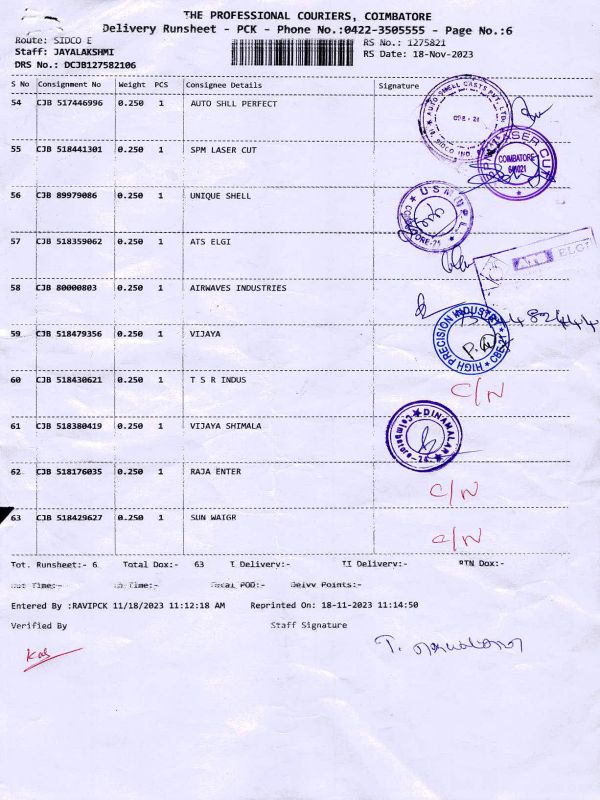 THE PROFESSIONAL COURIERS, COIMBATORE
Delivery Runsheet - PCK - Phone No.:0422-3505555 - Page No.:6
Route: SIDCO E
RS No.: 1275821
Staff: JAYALAKSHMI
RS Date: 18-Nov-2023
DRS No.: DCJB127582106
S No Consignment No Weight PCS Consignee Details Signature
54 CJB 517446996 0.250 1 AUTO SHLL PERFECT
AUTO SHELL CASTS PVT. LTD.
CBE - 21
SIDCO IND.
55 CJB 518441301 0.250 1 SPM LASER CUT
LASER CUT
COIMBATORE
641021
56 CJB 89979086 0.250 1 UNIQUE SHELL
57 CJB 518359062 0.250 1 ATS ELGI
ELGI
58 CJB 80000803 0.250 1 AIRWAVES INDUSTRIES
59 CJB 518479356 0.250 1 VIJAYA
HIGH PRECISION INDUSTRY
CBE-21
60 CJB 518430621 0.250 1 T S R INDUS C/N
61 CJB 518380419 0.250 1 VIJAYA SHIMALA
DINAMALAR
Coimbatore
62 CJB 518176035 0.250 1 RAJA ENTER C/N
63 CJB 518429627 0.250 1 SUN WAIGR C/N
Tot. Runsheet:- 6 Total Dox:- 63 I Delivery:- II Delivery:- RTN Dox:-
Out Time:- In Time:- Total POD:- Delvv Points:-
Entered By :RAVIPCK 11/18/2023 11:12:18 AM Reprinted On: 18-11-2023 11:14:50
Verified By Staff Signature